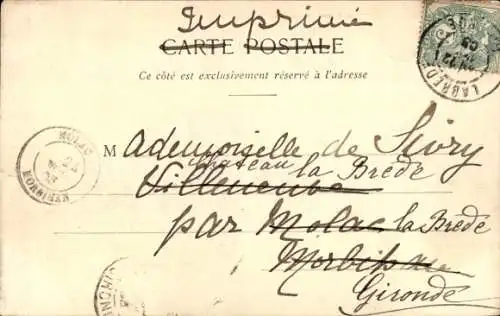 Imprimé
CARTE POSTALE
Ce côté est exclusivement réservé à l'adresse
Mademoiselle de Sivry
Château la Brède
Villeneuve
par Molac la Brède
Morbihan
Gironde
LABRÈDE
MORBIHAN